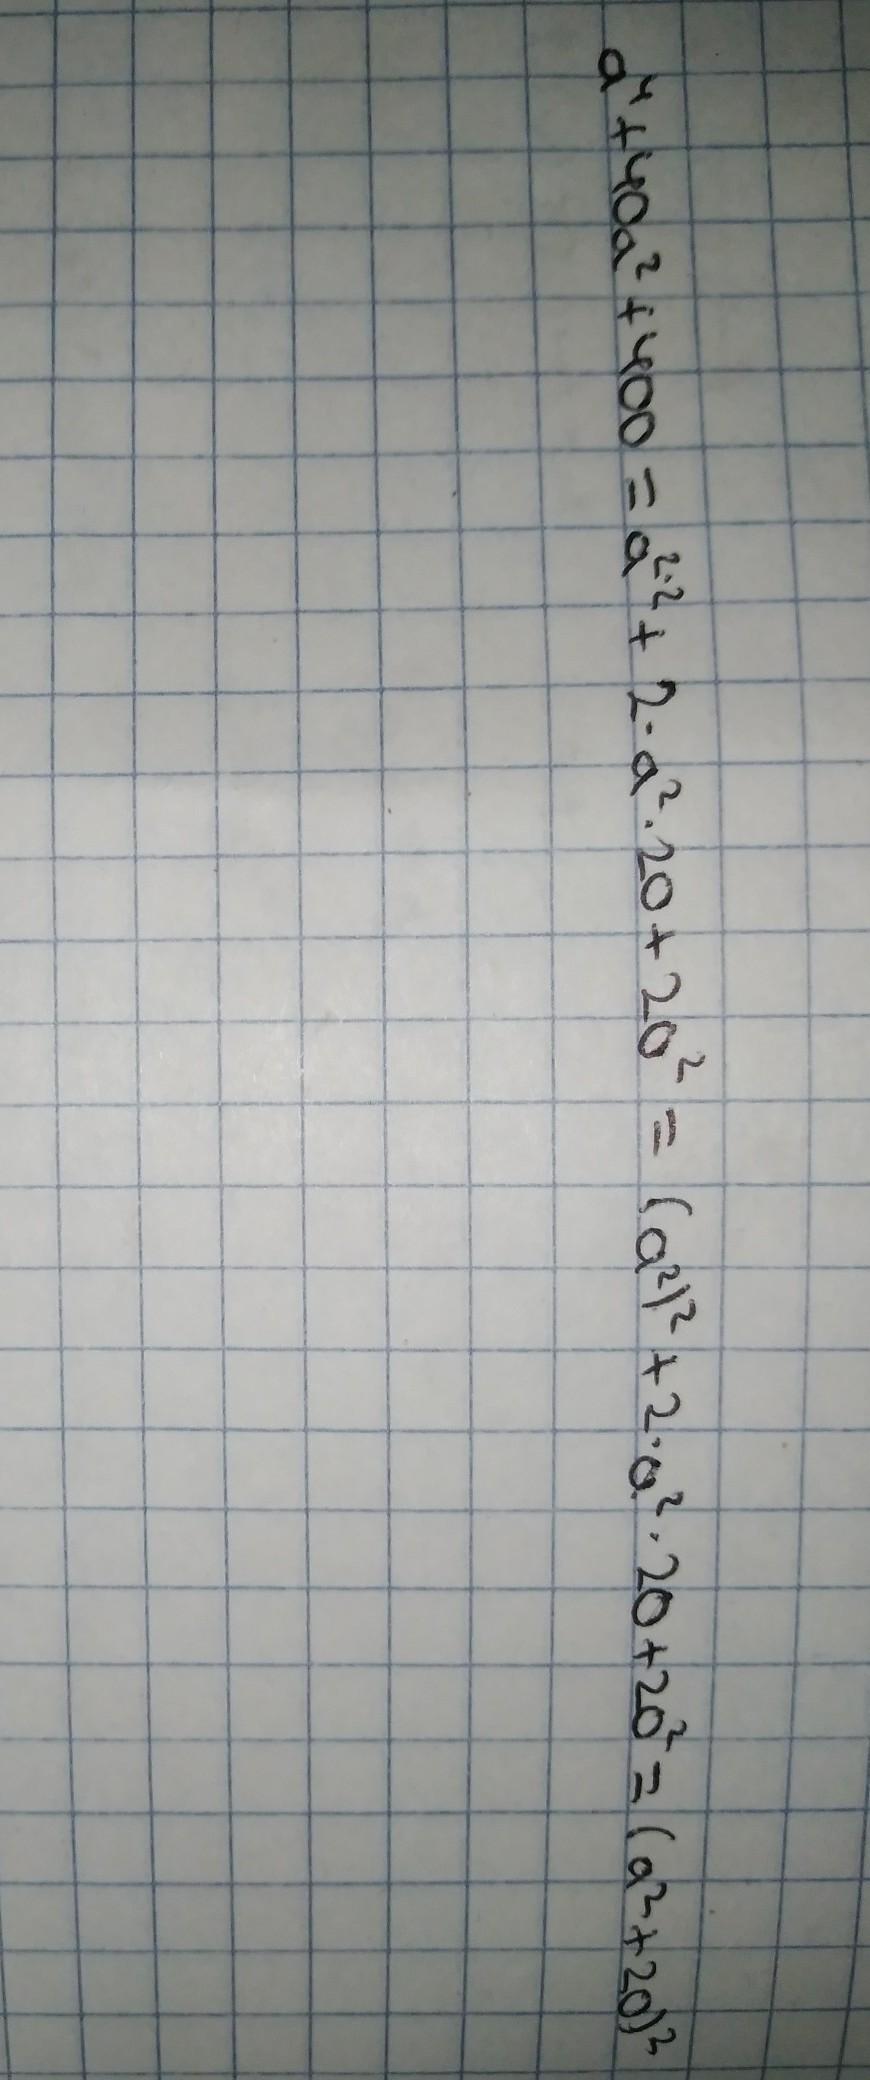 a⁴+40a²+400=a²·²+2·a²·20+20²=(a²)²+2·a²·20+20²=(a²+20)²